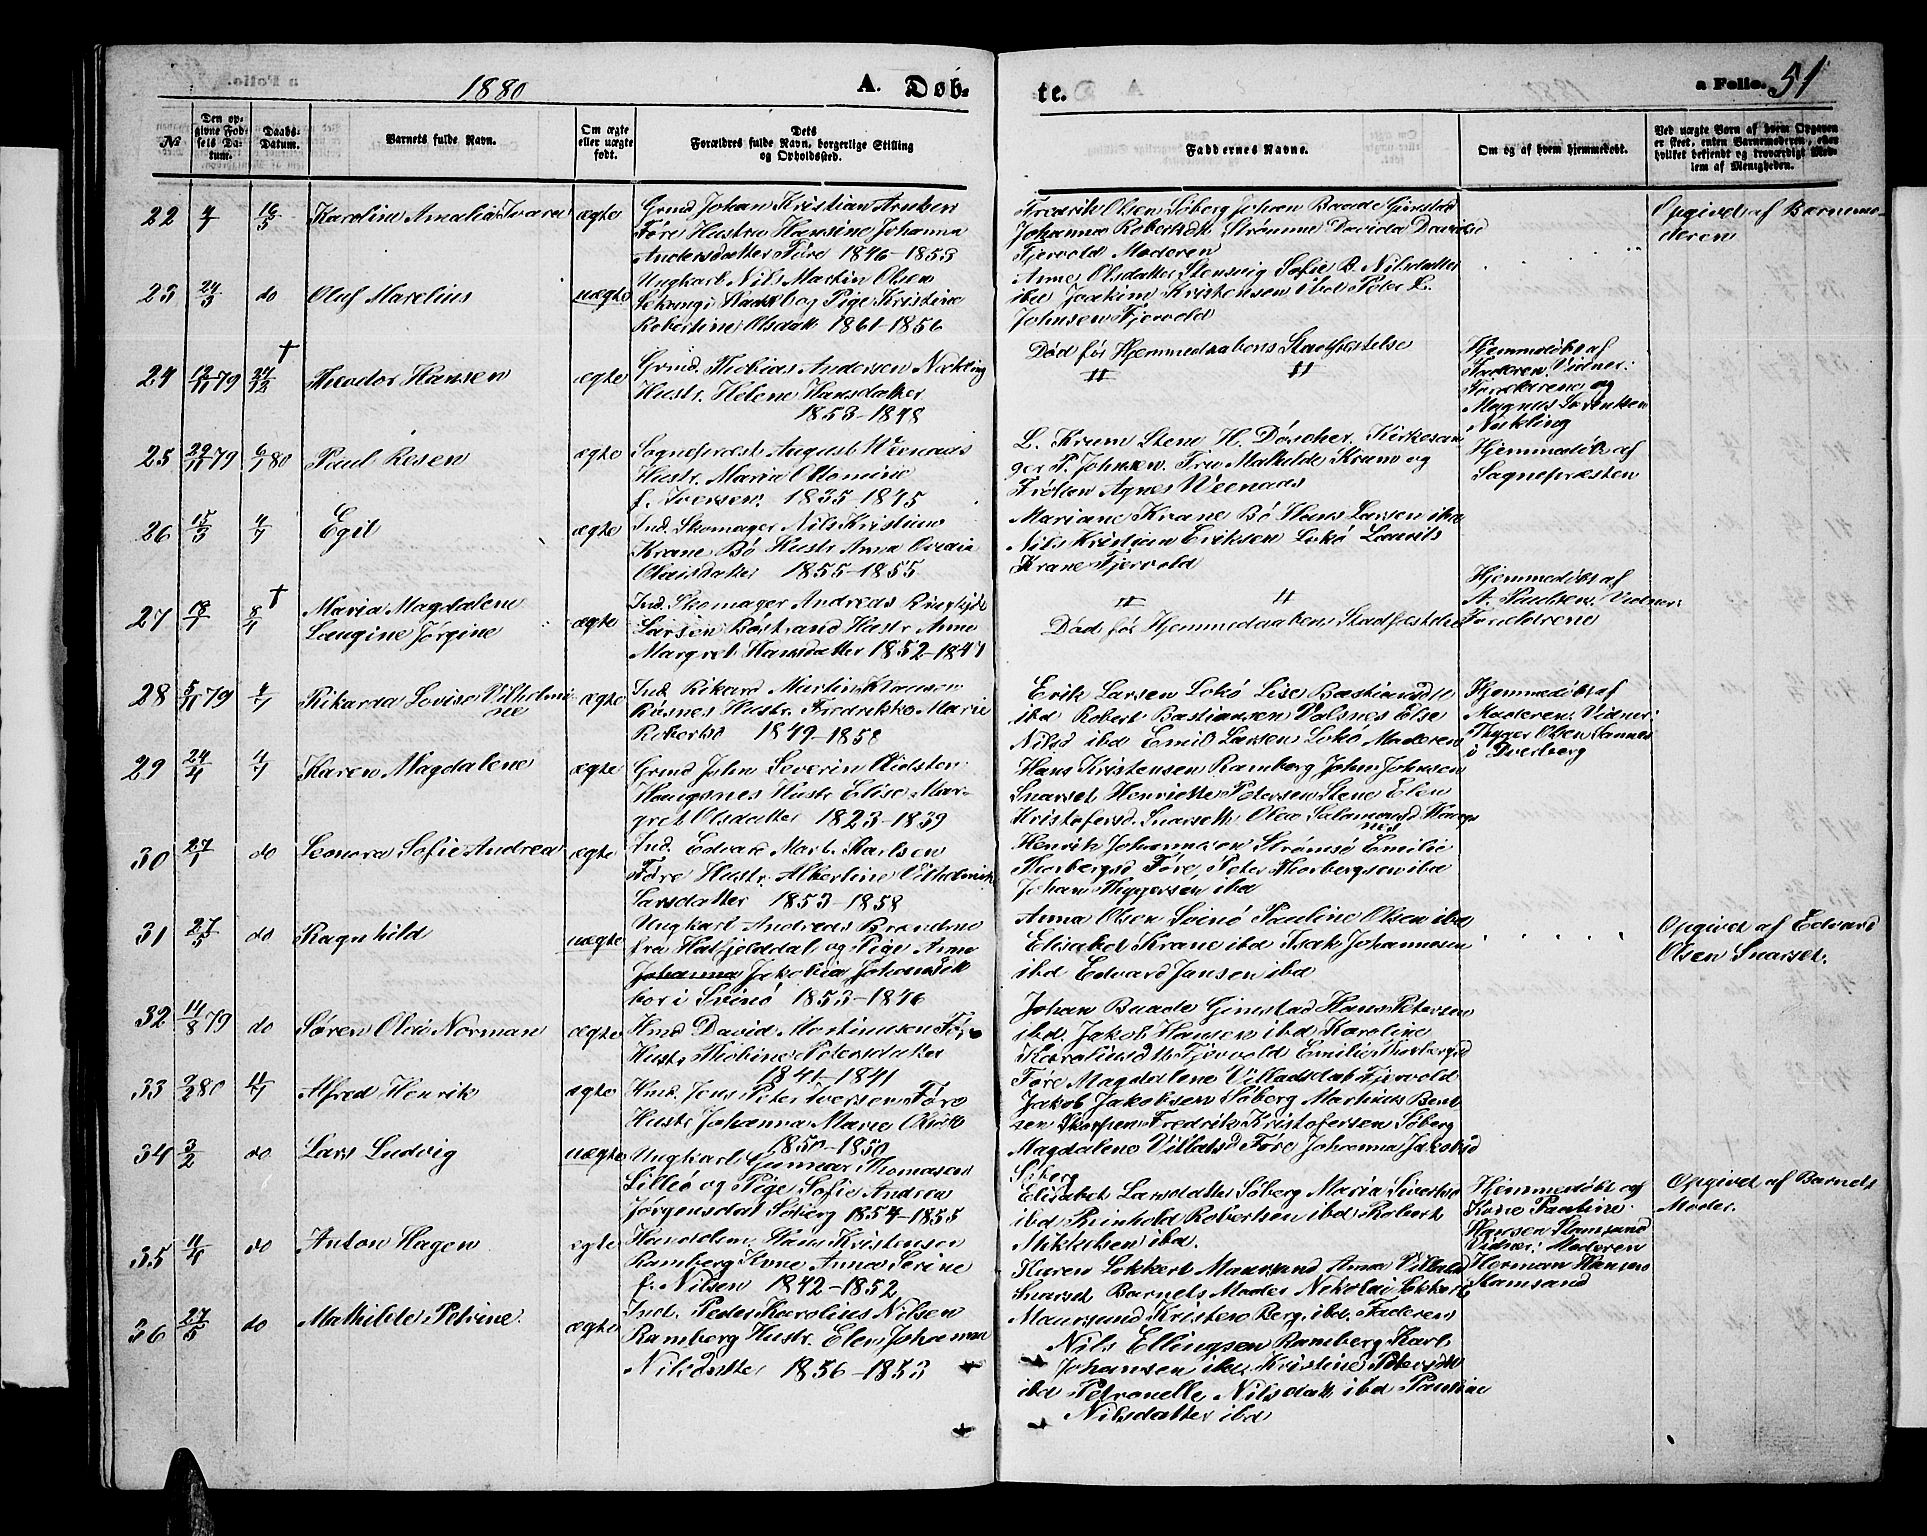 1880
A. Døb-
te.
a Folio. 51
No
Den op-
givne Fød-
sels Da-
tum.
Daabs-
Datum.
Barnets fulde Navn.
Om ægte
eller uægte
født.
Dets
Forældres fulde Navn, borgerlige Stilling
og Opholdssted.
Faddernes Navne.
Om og af hvem hjemmedøbt.
Ved uægte Børn af hvem Opgaven
er skeet, enten Barnemoderen, eller
hvilket bekjendt og troværdigt Med-
lem af Menigheden.
22 16/5 Karoline Amalia ægte
Grmd Johan Kristian
Føre Hustru Hansine Johanna
Andersdatter Føre 1846-1853
Fredrik Olsen Søberg Johan Baade Gimstad
Johanna Strømme Davida
Fjervold Moderen
Opgivet af Barnemo-
deren
23 24/3 do Oluf Marelius uægte
Ungkarl Nils Martin Olsen
og Pige Kristine
Robertine Olsdatt 1861-1856
Anne Olsdatter Stensvig Sofie B. Nilsdatter
ibd Joakim Kristensen ibd Peter L.
Johnsen Fjervold
24 12/11 79 † 27/12 Theodor Hansen ægte
Grmd. Thobias Andersen Nykling
Hustr. Helene Hansdatter
1853-1848
Død før Hjemmedaabens Stadfæstelse
" "
Hjemmedøbt af
Faderen Vidner:
Forældrene og
Magnus Sørensen
Nykling
25 29/11 79 6/1 80 Paul Rosen ægte
Sogneprest August Weenaas
Hustr. Maria Ottomine
f. Iversen. 1835-1845
L. Krum Stene H. Døscher Kirkesan-
ger P. Johnsen. Fru Mathilde Krum og
Frøken Agnes Weenaas
Hjemmedøbt af
Sognepræsten
26 15/3 4/7 Egil ægte
Ind. Skomager Nils Kristian
Krane Bø Hustr Anna
Olaisdatter 1855-1855
Mariane Krane Bø Hans Larsen ibd
Nils Kristian Eriksen Lokø Laurits
Krane Fjervold
27 † Maria Magdalene
Laugine Jørgine ægte
Ind. Skomager Andreas
Larsen Bøstrand Hustr Anne
Margret Hansdatter 1852-1847
" "
Død før Hjemmedaabens Stadfæstelse
Hjemmedøbt af
A. Paulsen. Vidner:
Forældrene
28 5/11 79 4/7 Rikarda Lovise Vilhelmi-
ne ægte
Ind. Rikard Martin Klausen
Røsnes Hustr. Fredrikke Marie
Robertsd 1849-1858
Erik Larsen Lokø Lise
ibd Robert Bastiansen Valsnes Else
Nilsd ibd Emil Larsen Lokø Moderen
Hjemmedøbt af
Moderen: Vidner:
Thyger Olsen
i Dverberg
29 24/4 4/7 Karen Magdalene ægte
Grmd John Severin
Haugsnes Hustr Elise Mar-
gret Olsdatter 1823-1839
Hans Kristensen Ramberg John Johnsen
Snarset Henriette Petersen Stene Elen
Kristofersd. Snarset Olea Salamonsd Haugs-
nes
30 27/1 do Leonora Sofie Andrea ægte
Ind. Edvard Mart. Karlsen
Føre Hustr. Albertine
Larsdatter 1853-1858
Henrik Johannesen Strømsø Emilie
Thorbergsd Føre, Peter Thorbergsen ibd
Johan Thygersen ibd
31 27/5 do Ragnhild uægte
Ungkarl Andreas
fra Hatfjelddal og Pige Anne
Johanna Jakobia
bor i Svinø 1853-1846
Anna Olsen Svinø Pauline Olsen ibd
Elisabet Krane ibd Isak Johannesen
ibd Edvard Jansen ibd
Opgivet af Edvard
Olsen Snarset.
32 14/8 79 do Søren Olai Norman ægte
Kmd David Martinusen Føre
Hustr Thobine Petersdatter
1841-1841
Johan Baade Gimstad Hans Petersen
ibd. Jakob Hansen ibd Karoline
Fjervold Emilie Thorbergsd
Føre Magdalene Villadsdat Fjervold
33 2/2 80 Alfred Henrik ægte
Kmd. Jens Peter Iversen Føre
Hustr Johanna Marie
1850-1850
Jakob Jakobsen Søberg Mathias Bent
sen Fredrik Kristofersen Søberg
Magdalene Føre Johanna Jakobsd
Søberg
34 3/2 do Lars Ludvig uægte
Ungkarl Gunnar Thomasen
Lilleø og Pige Sofie Andrea
Jørgensdat Søberg 1854-1855
Elisabet Larsdatter Søberg Maria
ibd Reinhold Robertsen ibd Robert
Mikkelsen ibd.
Hjemmedøbt af
Kone Pauline
Hansen Stamsund
Vidner: Moderen
Herman Hansen
Stamsund
Opgivet af Barnets
Moder.
35 4/4 do Anton Hagen ægte
Hans Kristensen
Ramberg Kone Anna Serine
f. Nilsen 1842-1852
Karen Lokkert Maursund Anna
Snarset Barnets Moder Nikolai Lokkert
Maursund Kristen Berg ibd. Faderen
36 27/5 do Mathilde Petrine. ægte
Ind. Peder Karolius Nilsen
Ramberg Hustr. Elen Johanna
Nilsdatter 1856-1853
Nils Ellingsen Ramberg Karl
Johansen ibd Kristine
ibd Petronelle Nilsdatt ibd Pauline
Nilsdatter ibd